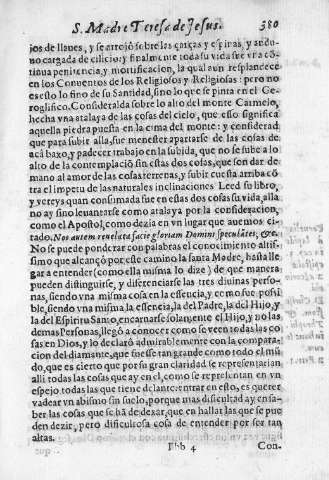 S. Madre Teresa de Jesus. 380
jos de llaues, y se arrojò sobre las çarças y espinas, y andu-
no cargada de cilicio: y finalmente toda su vida fue vna cõ-
tinua penitencia, y mortificacion, la qual aun resplandece
en los Conuentos de los Religiosos y Religiosas: pero no
es esto lo fino de su Santidad, sino lo que se pinta en el Ge-
roglifico. Consideralda sobre lo alto del monte Carmelo,
hecha vna atalaya de las cosas del cielo, que esso significa
aquella piedra puesta en la cima del monte: y considerad
que para subir alla, fue menester apartarse de las cosas de
acà baxo, y padecer trabajo en la subida, que no se sube a lo
alto de la contemplaciõ sin estas dos cosas, que son dar de
mano al amor de las cosas terrenas, y subir cuesta arriba cõ-
tra el impetu de las naturales inclinaciones Leed su libro,
y vereys quan consumada fue en estas dos cosas su vida, alla
no ay sino leuantarse como atalaya por la consideracion,
como el Apostol, como dezia en vn lugar que auemos ci-
tado. Nos autem reuelata facie gloriam Domini speculãtes, &c.
No se puede ponderar con palabras el conocimiento altis-
simo que alcançò por este camino la santa Madre, hasta lle-
gar a entender (como ella misma lo dize) de que manera
pueden distinguirse, y diferenciarse las tres diuinas perso-
nas, siendo vna misma cosa en la essencia, y como fue posi-
ble, siendo vna misma la essencia, la del Padre, la del Hijo, y
la del Espiritu Santo, encarnarse solamente el Hijo, y no las
demas Personas, llegò a conocer como se veen todas las co-
sas en Dios, y lo declarò admirablemente con la compara-
cion del diamante, que fuesse tan grande como todo el mũ-
do, que es cierto que por su gran claridad se representarian
alli todas las cosas que ay en el, como se representan en vn
espejo todas las que tiene delante: entrar en esto, es querer
vadear vn abismo sin suelo, porque mas dificultad ay ensa-
ber las cosas que se hã de dexar, que en hallar las que se pue
den dezir, pero dificultosa cosa de entender por ser tan
altas.
Bbb 4 Con-